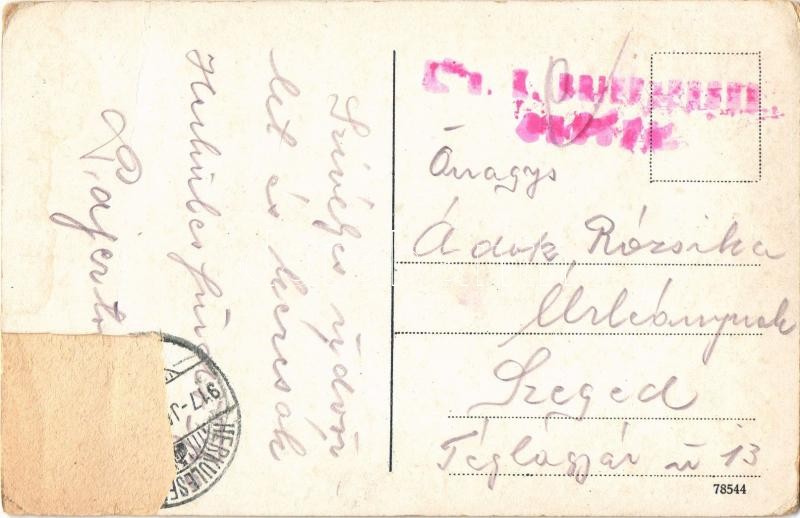 Szívéljes üdvöz
let és kézcsók
Herkulesfürd
Őnagys
Ádok Rózsika
Úrleánynak
Szeged
Téglagyár u 13
917 - J
HERKULESF
78544